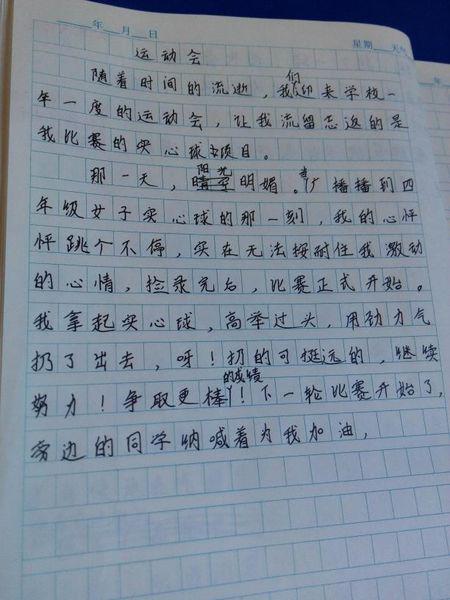 年 月 日
星期 天气
运动会
随着时间的流逝，我们迎来学校一
年一度的运动会，让我流留忘返的是
我比赛的实心球项目。
那一天，阳光明媚。当广播播到四
年级女子实心球的那一刻，我的心怦
怦跳个不停，实在无法按耐住我激动
的心情，捡录完后，比赛正式开始。
我拿起实心球，高举过头，用劲力气
扔了出去，呀！扔的可挺远的，继续
努力！争取更棒的成绩！下一轮比赛开始了，
旁边的同学呐喊着为我加油，